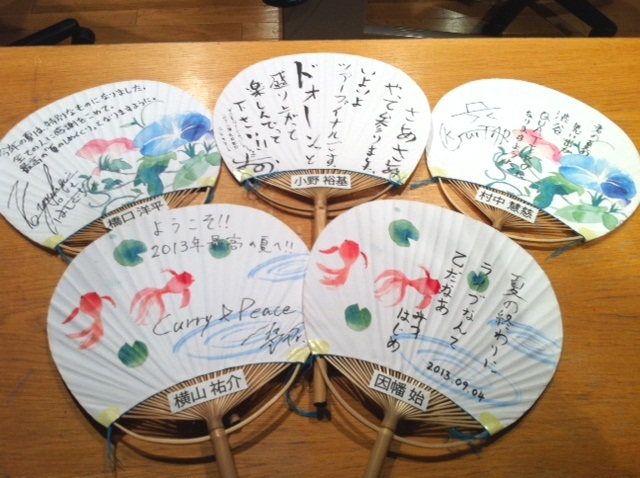 今年の夏は特別なものになりました。
全ての人に感謝をこめて。
最高の夏のしめくくりとなりますように。
橋口 洋平
さぁさぁ
やて参ります。
いよいよ
ツアーファイナルです。
ドォーンと
盛り上がって
楽しんで
下さい!!
小野 裕基
渋谷
村中 慧慈
ようこそ!!
2013年最高の夏へ!!
Curry☆Peace
横山 祐介
夏の終わりに
ライブなんて
乙だなあ
みつ
はじめ
2013.09.04
因幡 始